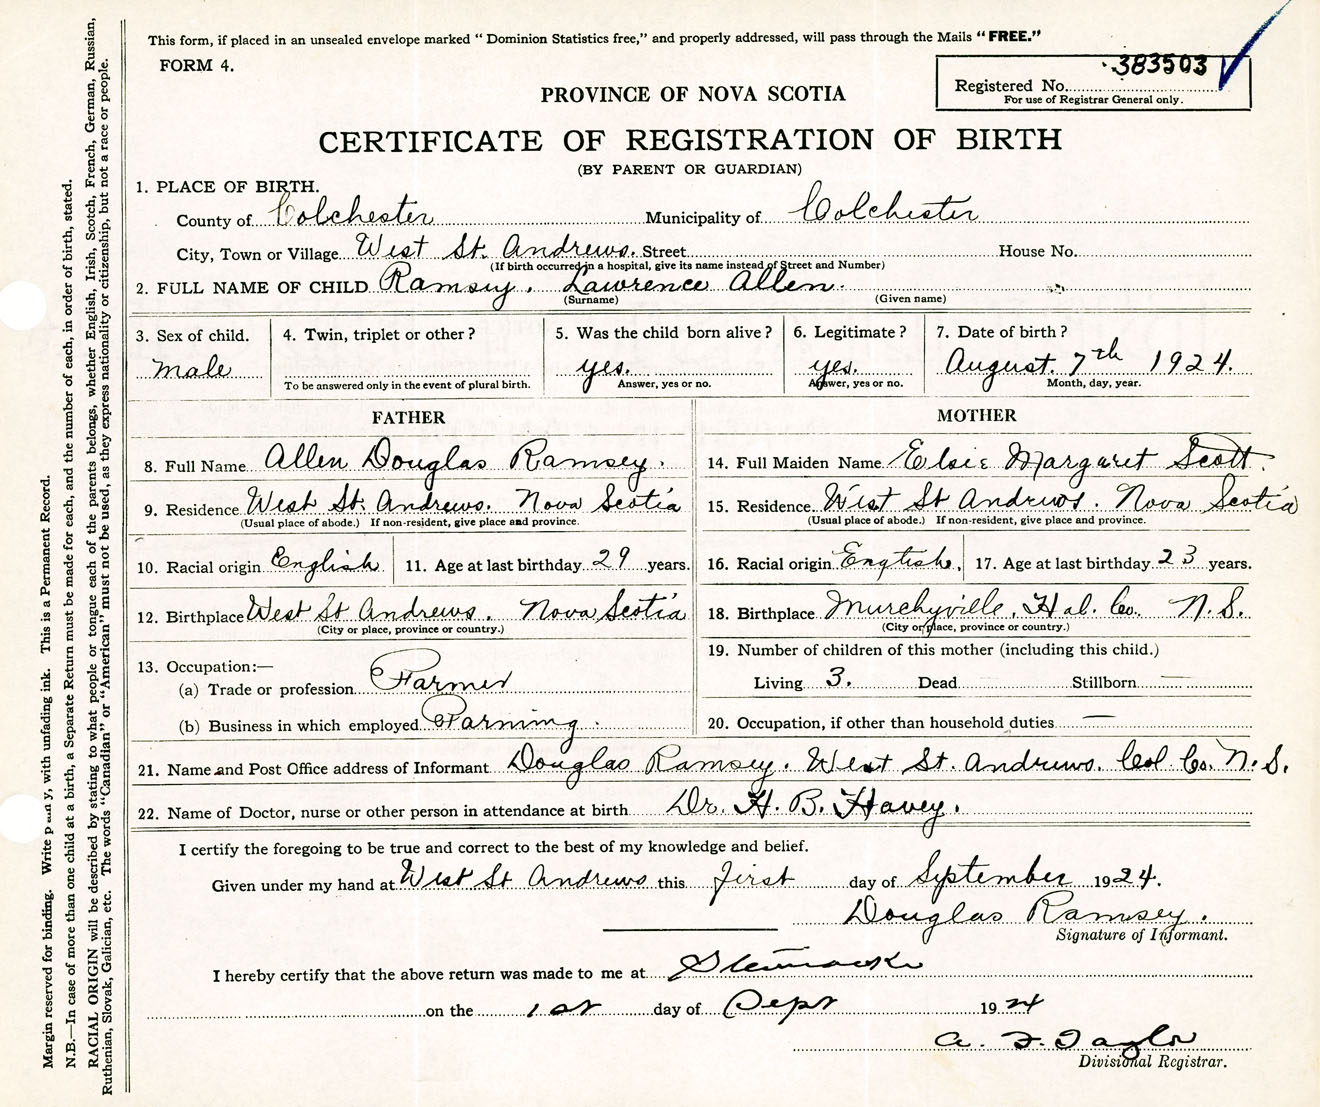 This form, if placed in an unsealed envelope marked “ Dominion Statistics free,” and properly addressed, will pass through the Mails “FREE.”
FORM 4.
383503
Registered No.
For use of Registrar General only.
PROVINCE OF NOVA SCOTIA
CERTIFICATE OF REGISTRATION OF BIRTH
(BY PARENT OR GUARDIAN)
1. PLACE OF BIRTH.
County of Colchester Municipality of Colchester
City, Town or Village West St. Andrews. Street House No.
(If birth occurred in a hospital, give its name instead of Street and Number)
2. FULL NAME OF CHILD Ramsey. Lawrence Allen.
(Surname) (Given name)
3. Sex of child. 4. Twin, triplet or other? 5. Was the child born alive? 6. Legitimate? 7. Date of birth?
male yes. yes. August. 7th 1924.
To be answered only in the event of plural birth. Answer, yes or no. Answer, yes or no. Month, day, year.
FATHER MOTHER
8. Full Name Allen Douglas Ramsey. 14. Full Maiden Name Elsie Margaret Scott.
9. Residence West St. Andrews. Nova Scotia 15. Residence. West St Andrews. Nova Scotia
(Usual place of abode.) If non-resident, give place and province. (Usual place of abode.) If non-resident, give place and province.
10. Racial origin English 11. Age at last birthday 29 years. 16. Racial origin English. 17. Age at last birthday 23 years.
12. Birthplace West St Andrews. Nova Scotia 18. Birthplace Murchyville, Hal. Co. N.S.
(City or place, province or country.) (City or place, province or country.)
13. Occupation:— 19. Number of children of this mother (including this child.)
(a) Trade or profession Farmer Living 3. Dead Stillborn —
(b) Business in which employed Farming. 20. Occupation, if other than household duties —
21. Name and Post Office address of Informant Douglas Ramsey. West St. Andrews. Col. Co. N.S.
22. Name of Doctor, nurse or other person in attendance at birth Dr. H. B. Havey.
I certify the foregoing to be true and correct to the best of my knowledge and belief.
Given under my hand at West St Andrews this first day of September 1924.
Douglas Ramsey.
Signature of Informant.
I hereby certify that the above return was made to me at Stewiacke
on the 1st day of Sept 1924
A. F. Taylor
Divisional Registrar.
Margin reserved for binding. Write plainly, with unfading ink. This is a Permanent Record.
N.B.—In case of more than one child at a birth, a Separate Return must be made for each, and the number of each, in order of birth, stated.
RACIAL ORIGIN will be described by stating to what people or tongue each of the parents belongs, whether English, Irish, Scotch, French, German, Russian,
Ruthenian, Slovak, Galician, etc. The words “Canadian” or “American” must not be used, as they express nationality or citizenship, but not a race or people.